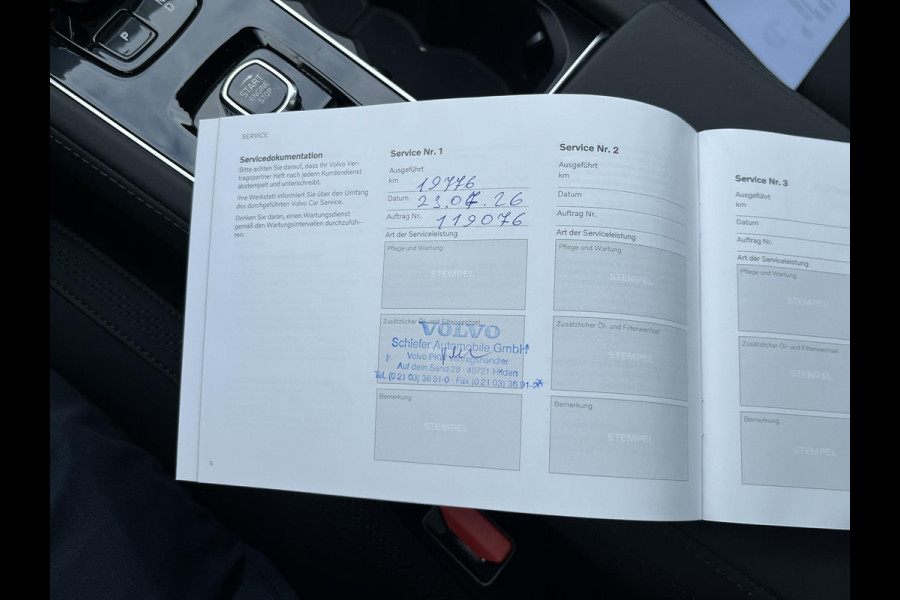 P
R
D
START
ENGINE
STOP
SERVICE
Servicedokumentation
Bitte achten Sie darauf, dass Ihr Volvo Ver-
tragspartner Heft nach jedem Kundendienst
abstempelt und unterschreibt.
Ihre Werkstatt informiert Sie über den Umfang
des durchgeführten Volvo Car Service.
Denken Sie daran, einen Wartungsdienst
gemäß den Wartungsintervallen durchzufüh-
ren.
Service Nr. 1
Ausgeführt
km 19776
Datum 23.07.26
Auftrag Nr. 119076
Art der Serviceleistung
Pflege und Wartung
STEMPEL
Zusätzlicher Öl- und Filterwechsel
VOLVO
Schiefer Automobile GmbH
Volvo PKW Vertragshändler
Auf dem Sand 28 · 40721 Hilden
Tel. (0 21 03) 36 91-0 · Fax (0 21 03) 36 91-
Bemerkung
STEMPEL
Service Nr. 2
Ausgeführt
km
Datum
Auftrag Nr.
Art der Serviceleistung
Pflege und Wartung
STEMPEL
Zusätzlicher Öl- und Filterwechsel
STEMPEL
Bemerkung
STEMPEL
Service Nr. 3
Ausgeführt
km
Datum
Auftrag Nr.
Art der Serviceleistung
Pflege und Wartung
STEMPEL
Zusätzlicher Öl- und Filterwechsel
STEMPEL
Bemerkung
STEMPEL